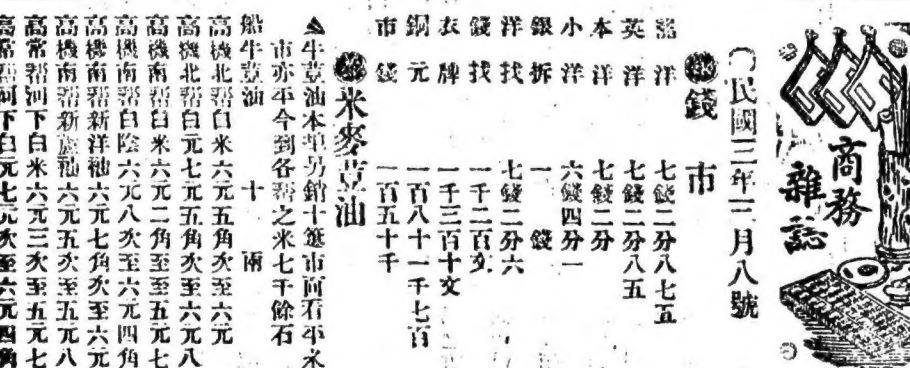 商務
雜誌
民國三年三月八號
錢市
龍洋 七錢二分八七五
英洋 七錢二分八五
本洋 七錢二分
小洋 六錢四分一
銀拆 一錢
洋找 七錢二分六
錢找 一千二百文
衣牌 一千三百十文
銅元 一百八十一千七百
市錢 一百五十千
米麥荳油
牛荳油本單另銷十簍市面石平米
市亦平今到各帮之米七千餘石
船牛荳油 十兩
高機北帮白米六元五角次至六元
高機北帮白元七元五角次至六元八
高機南帮白米六元二角至五元七
高機南帮白陰六元八次至六元四角
高機南帮新洋秈六元七角次至六元
高機南帮新 秈六元五次至五元八
高常帮河下白米六元三次至五元七
高常帮河下白元七元次至六元四角